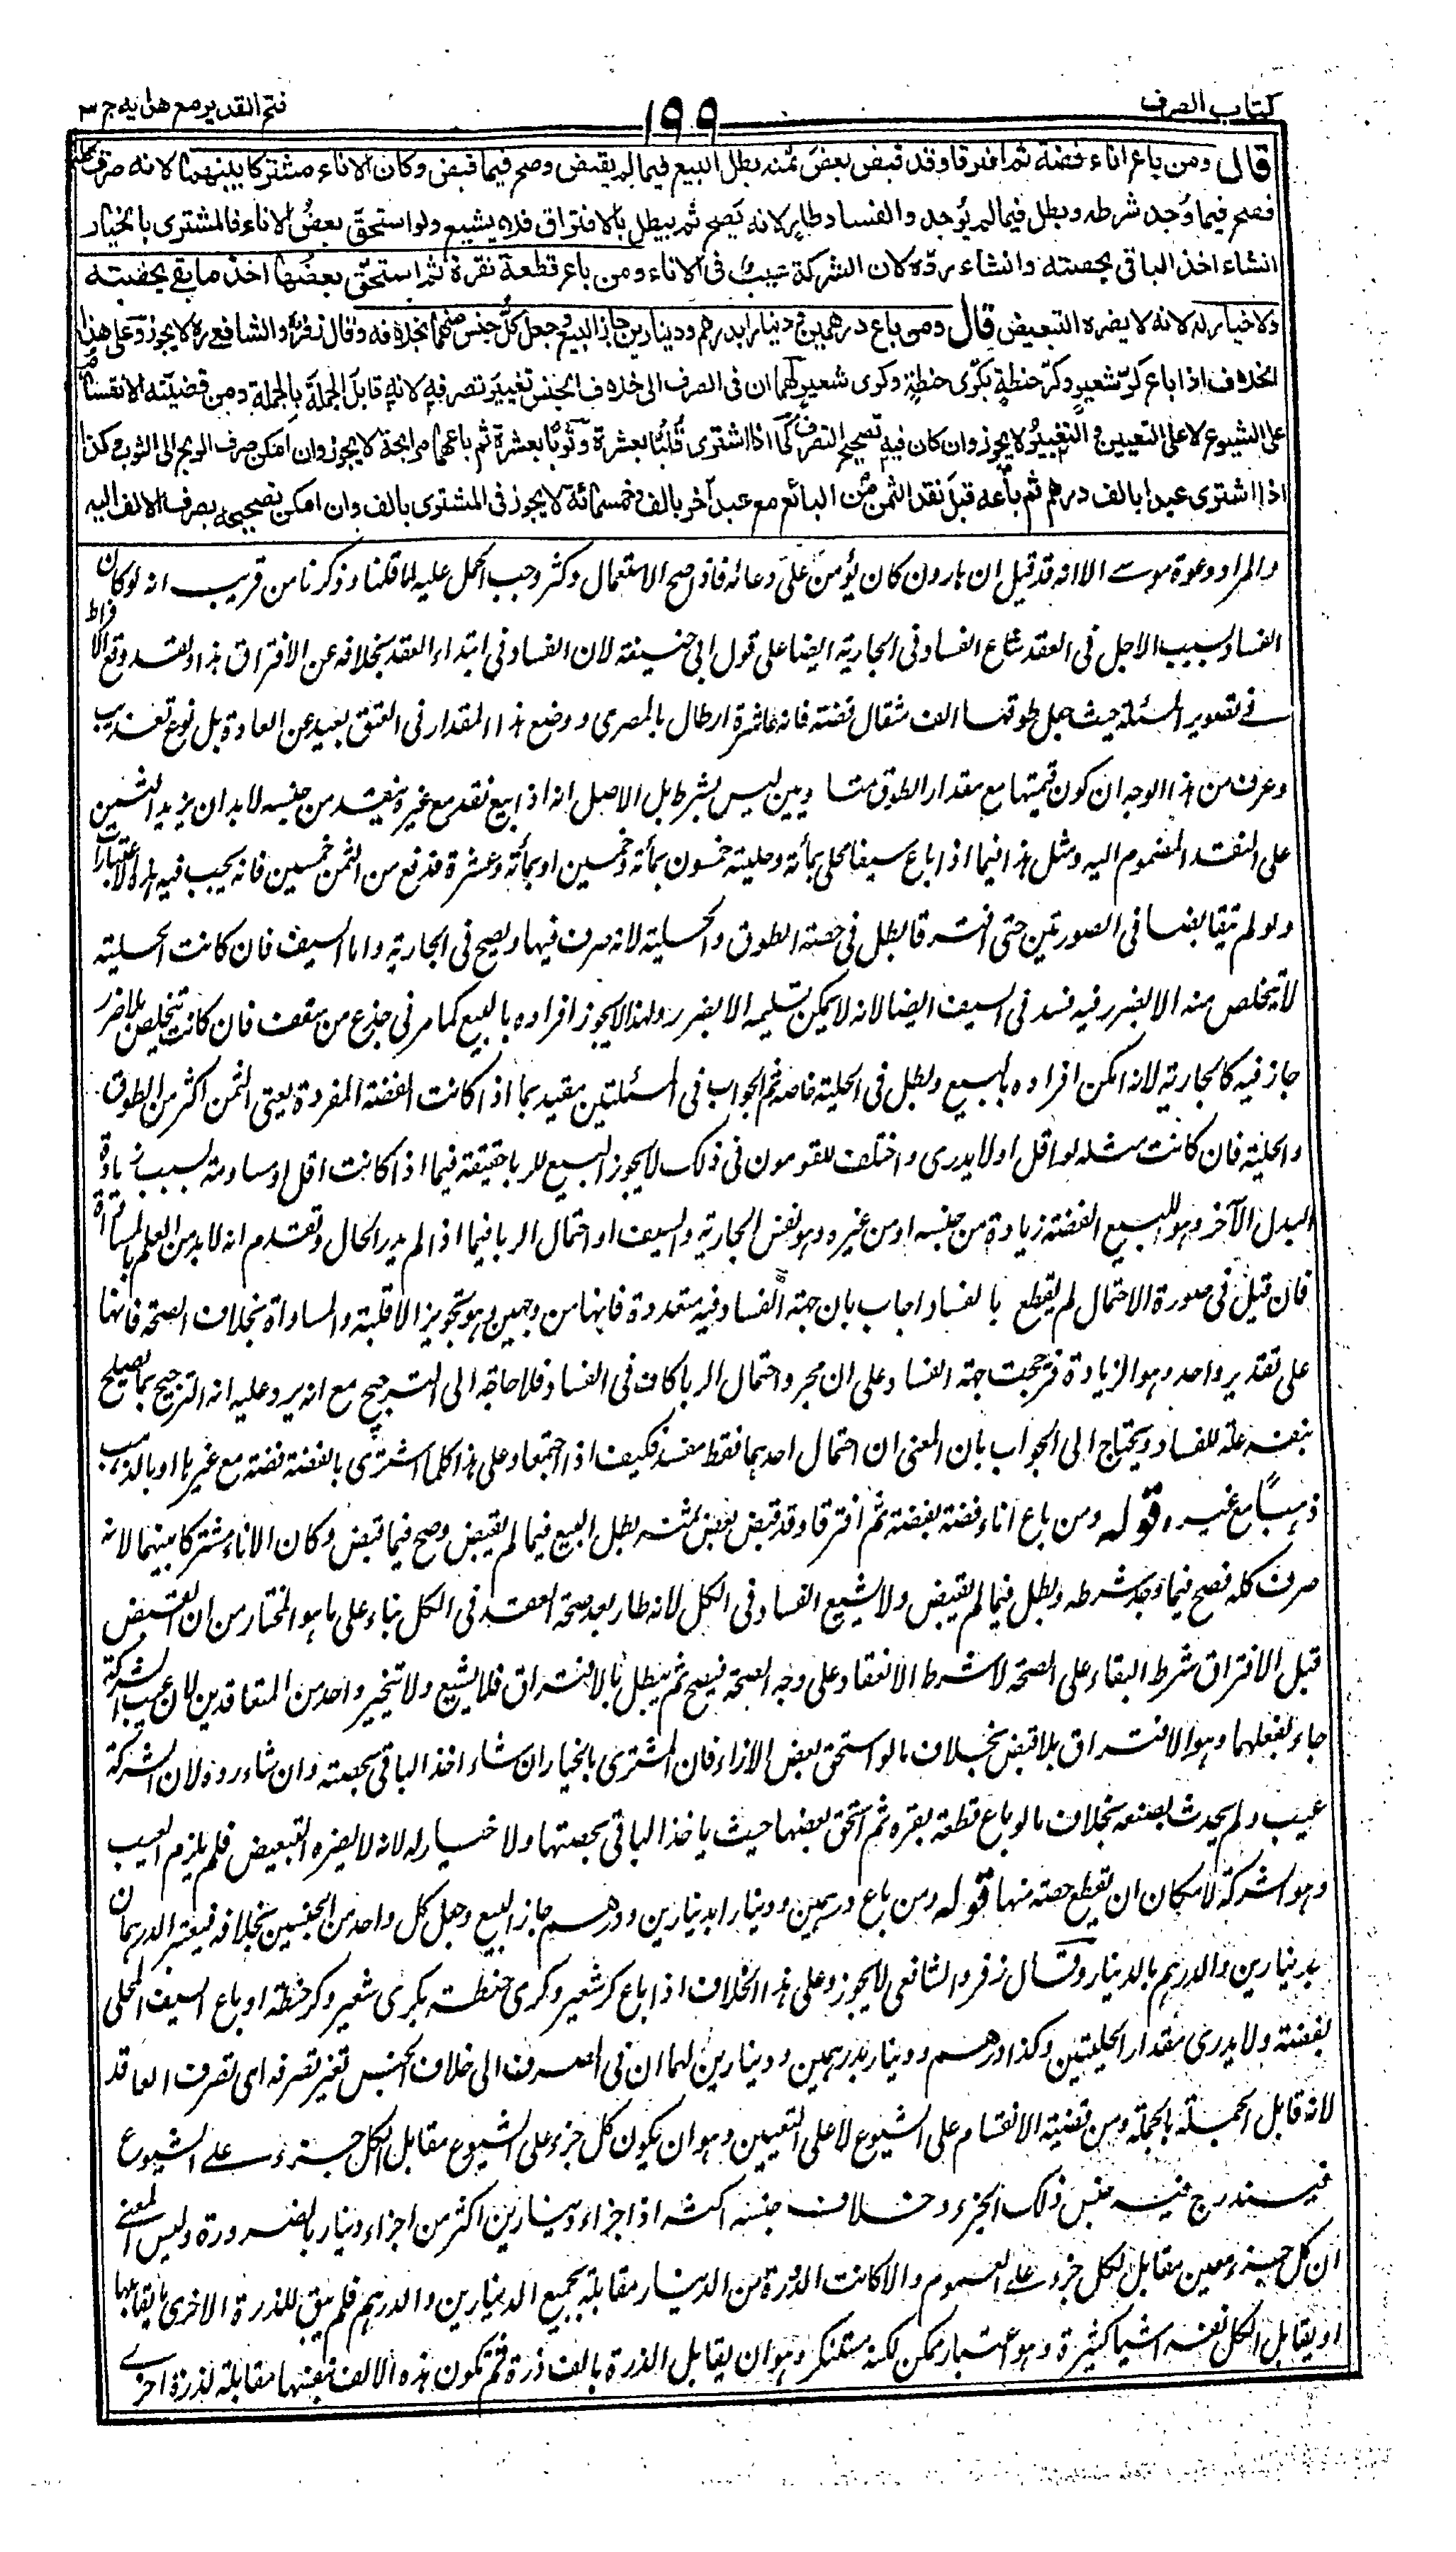 كتاب الصرف
١٩٩
فتح القدير مع هدايه ج ٣
قال ومن باع اناء فضة ثم افترقا وقد قبض بعض ثمنه بطل البيع فيما لم يقبض وصح فيما قبض وكان الاناء مشتركا بينهما لانه صرف كله
فصح فيما وُجد شرطه وبطل فيما لم يُوجد والفساد طارٍ لانه يَصح ثم يبطل بالافتراق فلا يشيع ولو استحقَّ بعضُ الاناء فالمشترى بالخيار
انشاء اخذ الباقى بحصته وانشاء ردّه لان الشركة عيبٌ فى الاناء ومن باع قطعة نقرة ثم استحقّ بعضُها اخذ ما بقے بحصته
ولا خيار له لانه لا يضره التبعيض قال ومن باع درهمين ودينارا بدرهم ودينارين جاز البيع وجعل كلُّ جنس منهما بخلافه وقال زفرُ والشافعےره لا يجوز وعلى هذا
الخلاف اذا باع كرَّ شعيرٍ وكرَّ حنطةٍ بكرّى حنطةٍ وكرى شعيرٍ لهما ان فى الصرف الى خلاف الجنس تغييرَ تصرفهِ لانه قابلَ الجملةَ بالجملة ومن قضيّته الانقسامُ
على الشيوع لا على التعيين والتغييرُ لا يجوز وان كان فيه تصحيح التصرف كما اذا اشترى قُلْبًا بعشرة وثوبًا بعشرة ثم باعهما مرابحة لا يجوز وان امكن صرف الربح الى الثوب وكذا
اذا اشترى عبدا بالف درهم ثم باعه قبلَ نقد الثمن من البائع مع عبد آخر بالف وخمسمائة لا يجوز فى المشترى بالف وان امكن تصحيحه بصرف الالف اليه
والمراد دعوة موسے الا انه قد قيل ان هارون كان يؤمن على دعائه فاذا صح الاستعمال وكثر وجب الحمل عليه لما قلنا وذكرنا من قريب انه لو كان
الفساد بسبب الاجل فى العقد شاع الفساد فى الجارية ايضا على قول ابى حنيفة لان الفساد فى ابتداء العقد بخلافه عن الافتراق هذا ولقد وقع الافراط
فے تصوير المسئلة حيث جعل طوقها الف مثقال فضة فانه عاشرة ارطال بالمصرى ووضع هذا المقدار فى العنق بعيد عن العادة بل نوع تعذيب
وعرف من هذا الوجه ان كون قيمتها مع مقدار الطوق متساويين ليس بشرط بل الاصل انه اذا بيع نقد مع غيره بنقد من جنسه لا بد ان يزيد الثمن
على النقد المضموم اليه ومثل هذا فيما اذا باع سيفا محلى بمائة وحليته خمسون بمائة وخمسين او بمائة وعشرة فدفع من الثمن خمسين فانه يجب فيه هذه الاعتبارات
ولو لم يتقابضا فى الصورتين حتى افترقا بطل فى حصة الطوق والحلية لانه صرف فيها ويصح فى الجارية واما السيف فان كانت الحلية
لا تخلص منه الا بضرر فيه فسد فى السيف ايضا لانه لا يمكن تسليمه الا بضرر ولهذا لا يجوز افراده بالبيع كما مر فى جذع من سقف فان كانت تخلص بلا ضرر
جاز فيه كالجارية لانه امكن افراده بالبيع وبطل فى الحلية خاصة ثم الجواب فى المسئلتين مقيد بما اذا كانت الفضة المفردة يعنى الثمن اكثر من الطوق
والحلية فان كانت مثله لو اقل او لا يدرى واختلف المقومون فى ذلك لا يجوز البيع للربا حقيقة فيما اذا كانت اقل او مساوية لسبب زيادة
البدل الآخر وهو المبيع الفضة زيادة من جنسه او من غيره وهو نفس الجارية والسيف او احتمال الربا فيما اذا لم يدر الحال وتقدم انه لا بد من العلم بالمساواة
فان قيل فى صورة الاحتمال لم يقطع بالفساد اجاب بان جهة الفساد فيه متعددة فانها من وجهين وهو تجويز الاقلية والمساواة بخلاف الصحة فانها
على تقدير واحد وهو الزيادة فترجحت جهة الفساد على ان مجرد احتمال الربا كاف فى الفساد فلا حاجة الى الترجيح مع انه يرد عليه انه الترجيح بما يصلح
بنفسه علة للفساد ويحتاج الى الجواب بان المعنى ان احتمال احدهما فقط مفسد فكيف اذا اجتمعا وعلى هذا كل ما اشترى بالفضة فضة مع غيرها او بالذهب
ذهبًا مع غيره قوله ومن باع اناء فضة بفضة ثم افترقا وقد قبض بعض ثمنه بطل البيع فيما لم يقبض وصح فيما قبض وكان الاناء مشتركا بينهما لانه
صرف كله فصح فيما وجد شرطه وبطل فيما لم يقبض ولا يشيع الفساد فى الكل لانه طار بعد صحة العقد فى الكل بناء على ما هو المختار من ان القبض
قبل الافتراق شرط البقاء على الصحة لا شرط الانعقاد على وجه الصحة فيصح ثم يبطل بالافتراق فلا يشيع ولا تخير واحد من المتعاقدين لان عيب الشركة
جاء بفعلهما وهو الافتراق بلا قبض بخلاف ما لو استحق بعض الاناء فان المشترى بالخيار ان شاء اخذ الباقى بحصته وان شاء رده لان الشركة
عيب ولم يحدث بصنعه بخلاف ما لو باع قطعة نقرة ثم استحق بعضها حيث ياخذ الباقى بحصتها ولا خيار له لانه لا يضره التبعيض فلم يلزم العيب
وهو الشركة لامكان ان يقطع حصته منها قوله ومن باع درهمين ودينارا بدينارين ودرهم جاز البيع وجعل كل واحد من الجنسين بخلافه فيعتبر الدرهمان
بدينارين والدرهم بالدينار وقال زفر والشافعى لا يجوز وعلى هذا الخلاف اذا باع كر شعير وكرى حنطة بكرى شعير وكر حنطة او باع السيف المحلى
بفضة ولا يدرى مقدار الحليتين وكذا درهم ودينار بدرهمين ودينارين لهما ان فى الصرف الى خلاف الجنس تغير تصرفه اى تصرف العاقد
لانه قابل الجملة بالجملة ومن قضية الانقسام على الشيوع لا على التعيين وهو ان يكون كل جزء على الشيوع مقابل لكل جزء علے الشيوع
فيندرج فيه جنس ذلك الجزء وخلاف جنسه اكثر اذ اجزاء دينارين اكثر من اجزاء دينار بالضرورة وليس المعنے
ان كل جزء معين مقابل لكل جزء علے العموم والا كانت الذرة من الدينار مقابلة بجميع الدينارين والدرهم فلم يبق للذرة الاخرى ما يقابلها
او يقابل الكل نفسه اشيا كثيرة وهو اعتبار ممكن لكنه مستنكر وهو ان يقابل الذرة بالف ذرة ثم تكون هذه الالف بعينها مقابلة لذرة اخرے